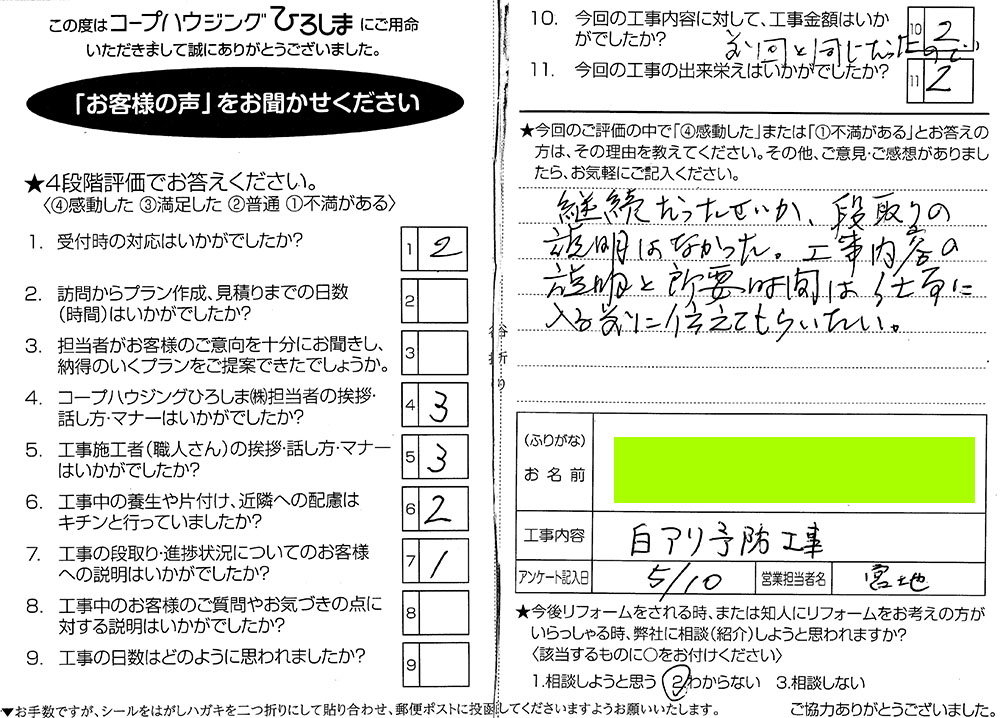 この度はコープハウジングひろしまにご用命
いただきまして誠にありがとうございました。
「お客様の声」をお聞かせください
★4段階評価でお答えください。
〈④感動した ③満足した ②普通 ①不満がある〉
1. 受付時の対応はいかがでしたか?
1 2
2. 訪問からプラン作成、見積りまでの日数
(時間)はいかがでしたか?
2
3. 担当者がお客様のご意向を十分にお聞きし、
納得のいくプランをご提案できたでしょうか。
3
4. コープハウジングひろしま㈱担当者の挨拶・
話し方・マナーはいかがでしたか?
4 3
5. 工事施工者(職人さん)の挨拶・話し方・マナー
はいかがでしたか?
5 3
6. 工事中の養生や片付け、近隣への配慮は
キチンと行っていましたか?
6 2
7. 工事の段取り・進捗状況についてのお客様
への説明はいかがでしたか?
7 1
8. 工事中のお客様のご質問やお気づきの点に
対する説明はいかがでしたか?
8
9. 工事の日数はどのように思われましたか?
9
▼お手数ですが、シールをはがしハガキを二つ折りにして貼り合わせ、郵便ポストに投函してくださいますようお願いいたします。
谷折り
10. 今回の工事内容に対して、工事金額はいか
がでしたか?
前回と同じだったので
10 2
11. 今回の工事の出来栄えはいかがでしたか?
11 2
★今回のご評価の中で「④感動した」または「①不満がある」とお答えの
方は、その理由を教えてください。その他、ご意見・ご感想がありまし
たら、お気軽にご記入ください。
継続だったせいか、段取りの
説明はなかった。工事内容の
説明と所要時間は仕事に
入る前に伝えてもらいたい。
(ふりがな)
お名前
工事内容 白アリ予防工事
アンケート記入日 5/10 営業担当者名 宮地
★今後リフォームをされる時、または知人にリフォームをお考えの方が
いらっしゃる時、弊社に相談(紹介)しようと思われますか?
〈該当するものに○をお付けください〉
1.相談しようと思う 2.わからない 3.相談しない
ご協力ありがとうございました。